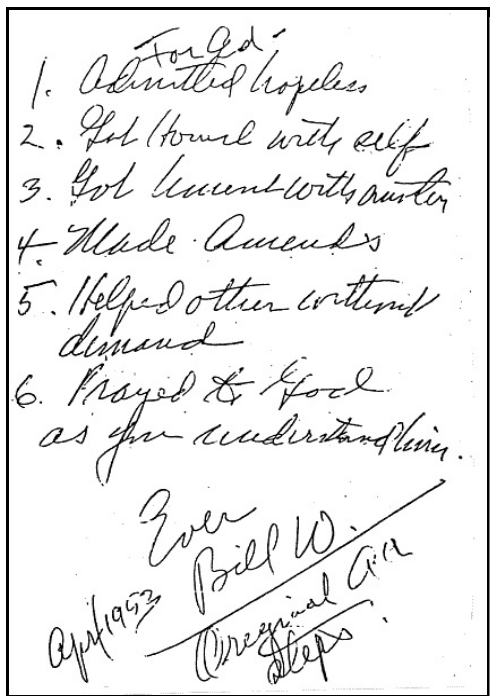 For Ed -
1. Admitted hopeless
2. Got Honest with self
3. Got honest with another
4. Made Amends
5. Helped other without
demand
6. Prayed to God
as you understand him.
Ever
Bill W.
April 1953
Original AA
Steps.